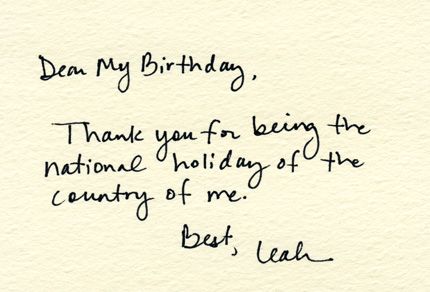 Dear My Birthday,
Thank you for being the
national holiday of the
country of me.
Best,
Leah